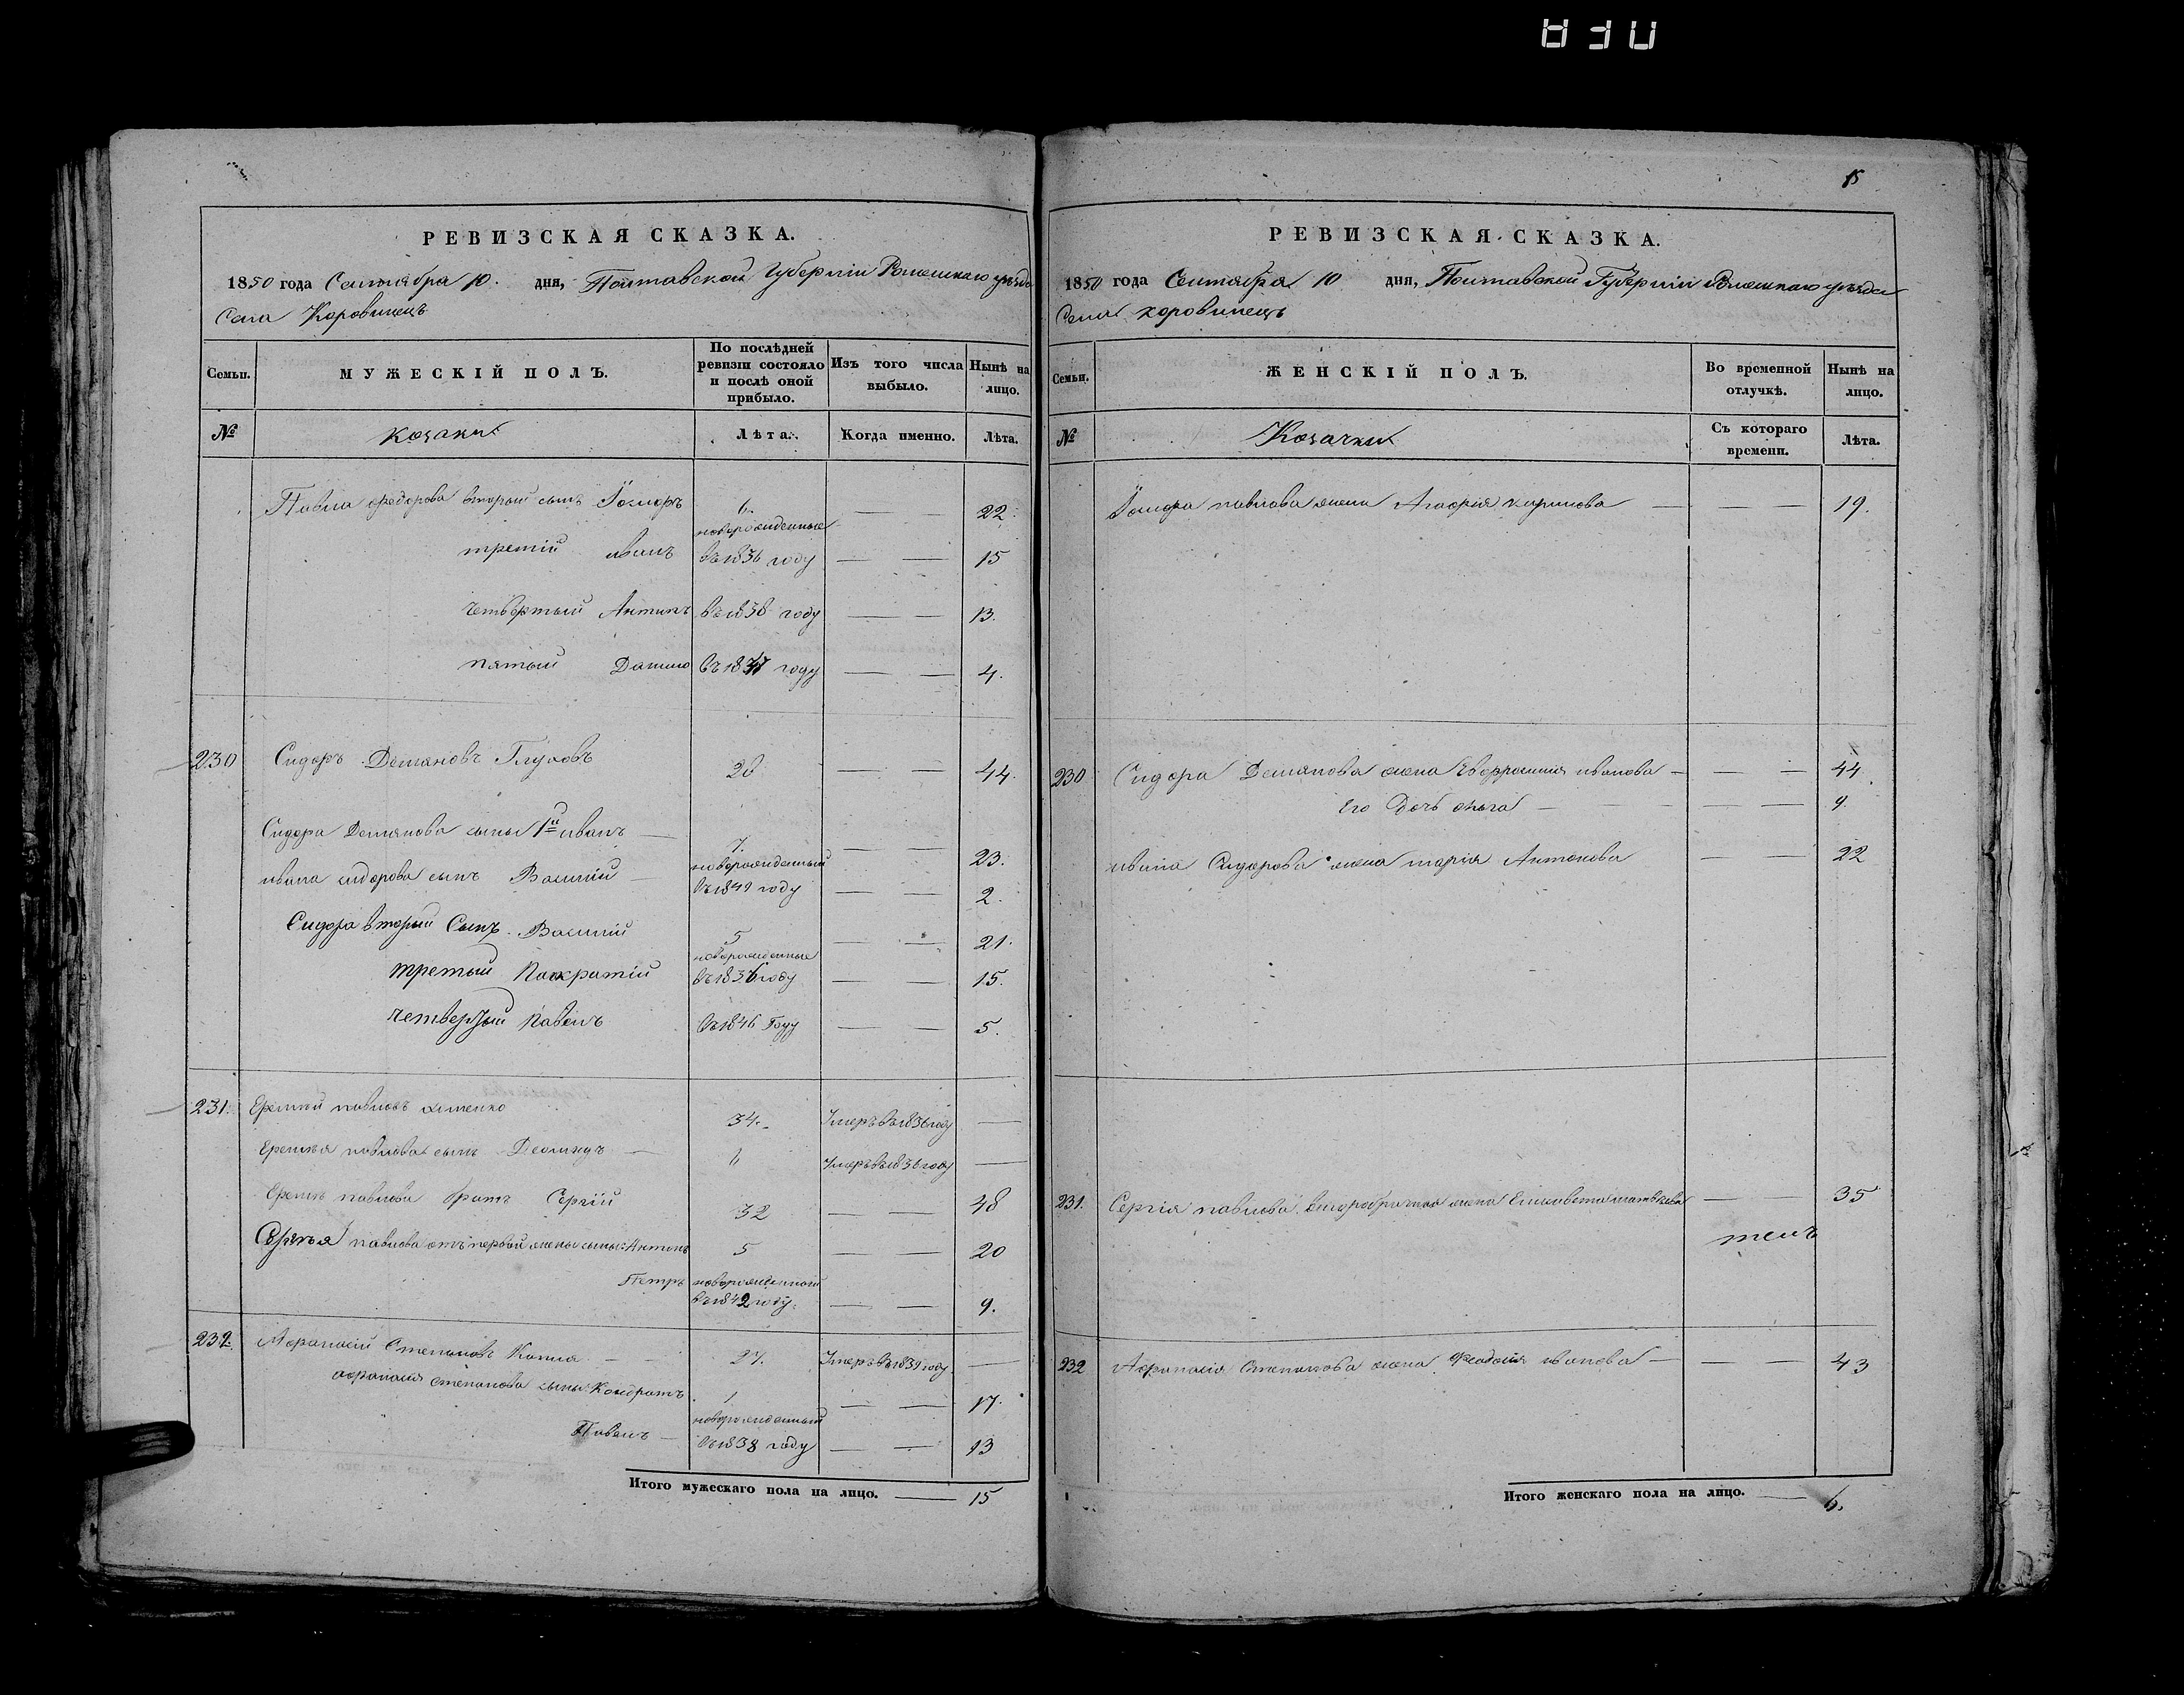 15
РЕВИЗСКАЯ СКАЗКА.
1850 года Сентября 10. дня, Полтавской Губерніи Роменскаго уѣзда
Села Коровинецъ
Семьи.
МУЖЕСКІЙ ПОЛЪ.
По послѣдней ревизіи состояло и послѣ оной прибыло.
Изъ того числа выбыло.
Нынѣ на лицо.
№
Козаки
Лѣта.
Когда именно.
Лѣта.
Павла Федорова второй сынъ 6. — — 22.
новорожденные
третій иванъ въ 1836 году — — 15
четвертый Антипъ въ 1838 году — — 13.
пятый Данило въ 1847 году — — 4.
230 Сидоръ Демяновъ Глуховъ 28 — — 44.
Сидора Демянова сыны 1й иванъ — 7. — — 23.
новорожденный
ивана сидорова сынъ Василій — въ 1849 году — — 2.
Сидора вторый Сынъ Василій 5 — — 21.
новорожденные
третый Панкратій въ 1836 году — — 15.
четвертый павелъ въ 1846 Году — — 5.
231. Еремѣй павловъ 34. Умеръ въ 1836 году —
Еремѣя павлова сынъ — Умеръ въ 1836 году —
павлова братъ Сергій 32 — — 48
Сергѣя павлова отъ первой жены сыны: Антонъ 5 — — 20
Петръ новорожденной
въ 1842 году. — — 9.
232. Афанасій Степановъ Копил — — 27. Умеръ въ 1839 году —
афанасія степанова сыны: Кондратъ 1 — — 17.
новорожденный
Павелъ — въ 1838 году — — 13
Итого мужескаго пола на лицо. — 15
РЕВИЗСКАЯ СКАЗКА.
1850 года Сентября 10 дня, Полтавской Губерніи Роменскаго уѣзда
Села коровинецъ
Семьи.
ЖЕНСКІЙ ПОЛЪ.
Во временной отлучкѣ.
Нынѣ на лицо.
№
Козачки
Съ котораго времени.
Лѣта.
павлова жена Агафія кирилова — — — 19.
230 Сидора Демянова жена Евфросинія иванова — — — 44.
Его Дочь ольга — — — 9.
ивана Сидорова жена марія Антонова — — 22
231. Сергія павлова второбрачная жена Елисавета матвѣева — — 35
232 Афанасія Степанова жена Феодосія иванова — — — 43
Итого женскаго пола на лицо. — 6.